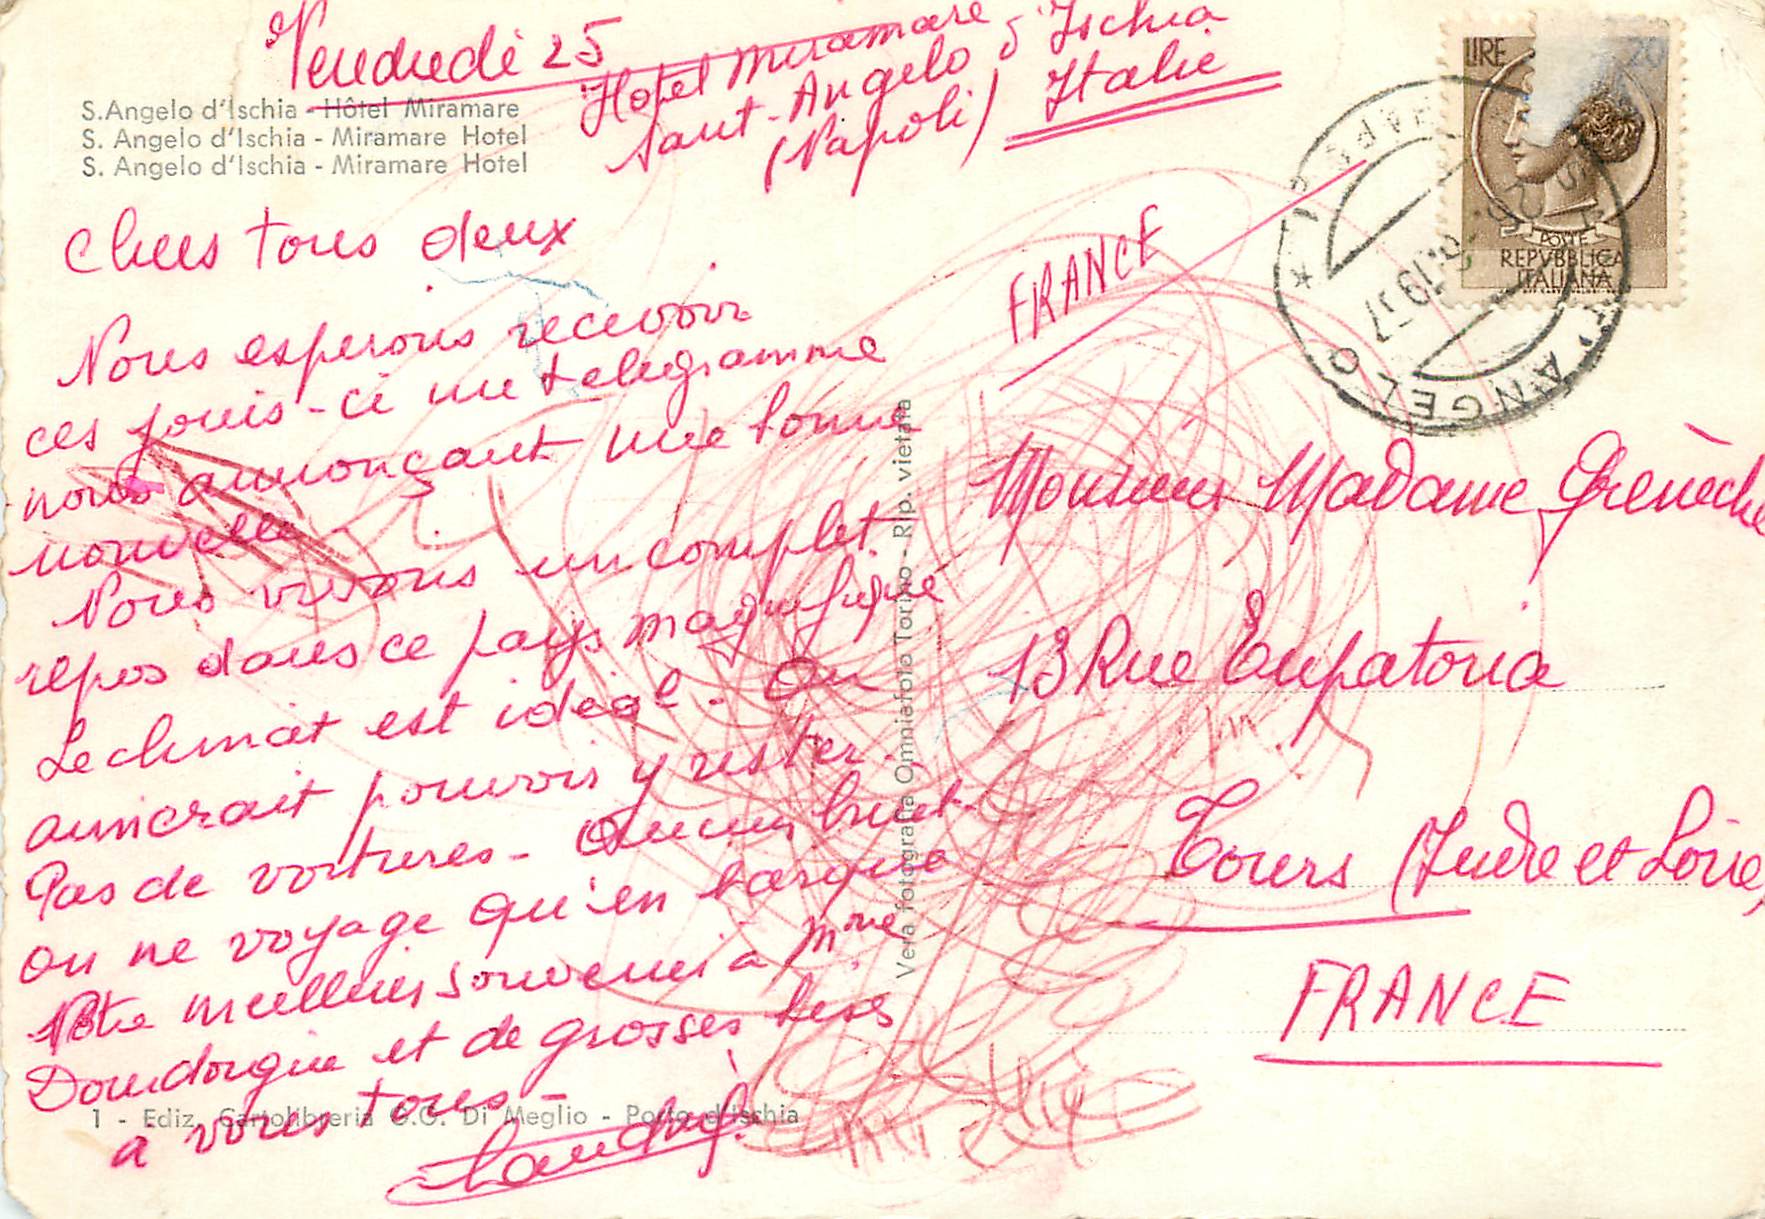 Vendredi 25
Hotel Miramare
Sant-Angelo d'Ischia
(Napoli) Italie
S.Angelo d'Ischia - Hôtel Miramare
S. Angelo d'Ischia - Miramare Hotel
S. Angelo d'Ischia - Miramare Hotel
LIRE 20
POSTE
REPVBBLICA
ITALIANA
ANGELO
19 57
FRANCE
Chers tous deux
Nous esperons recevoir
ces jours-ci un telegramme
nous annonçant une bonne
nouvelle
Nous vivons un complet
repos dans ce pays magnifique
Le climat est idéal - On
aimerait pouvoir y rester.
Pas de voitures - Aucun bruit
on ne voyage qu'en barque
Notre meilleur souvenir à Mme
et de grosses bises
a vous tous -
Monsieur Madame
13 Rue Eupatoria
Tours (Indre et Loire)
FRANCE
Vera fotografia Omniafoto Torino - Rip. vietata
1 - Ediz. Cartolibreria G.G. Di Meglio - Porto d'Ischia